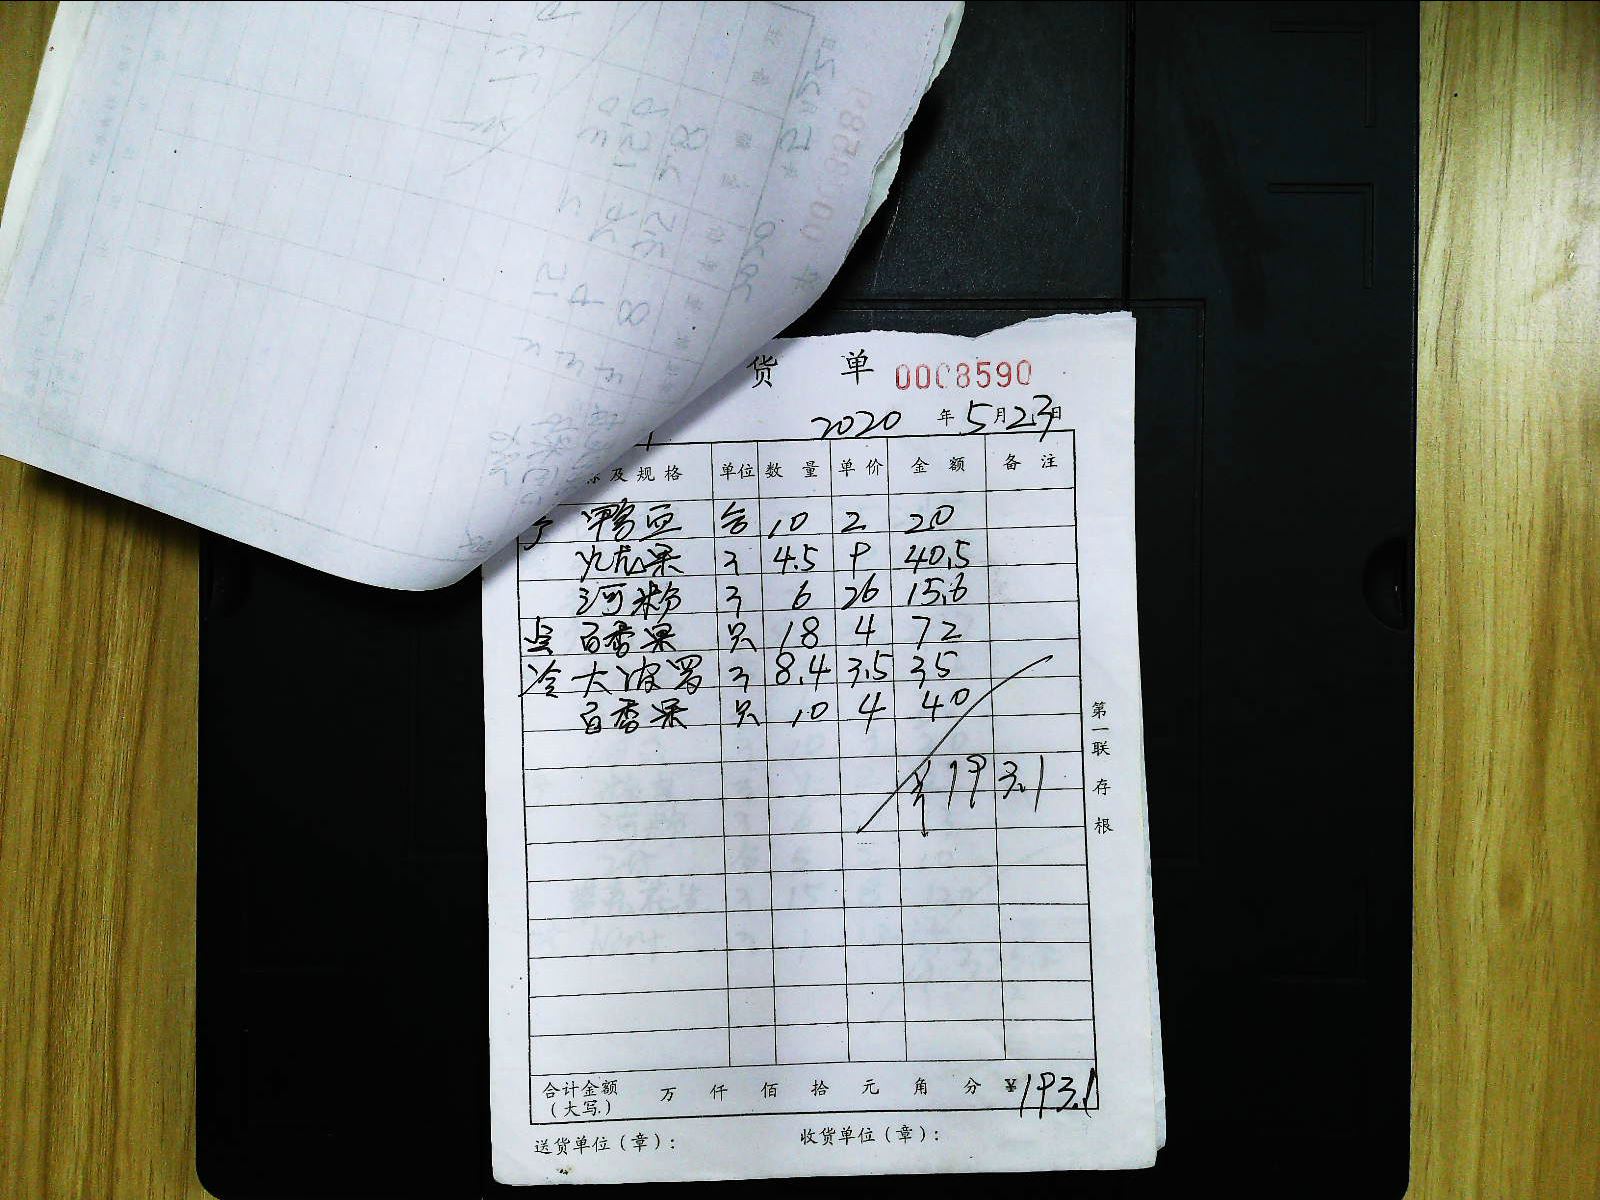 货 单 0008590
2020 年 5月23日
及规格 单位 数量 单价 金额 备注
鸭血 合 10 2 20
火龙果 斤 4.5 9 40.5
河粉 斤 6 26 15.6
百香果 只 18 4 72
冷 大菠萝 斤 8.4 3.5 35
百香果 只 10 4 40
¥193.1
第一联 存根
合计金额 万 仟 佰 拾 元 角 分 ¥193.1
（大写）
送货单位（章）： 收货单位（章）：